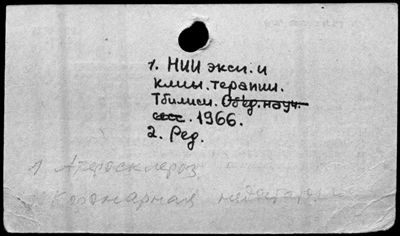 1. НИИ эксп. и
клин. терапии.
Тбилиси. Объед. науч.
сесс. 1966.
2. Ред.
1 Атеросклероз
Коронарная